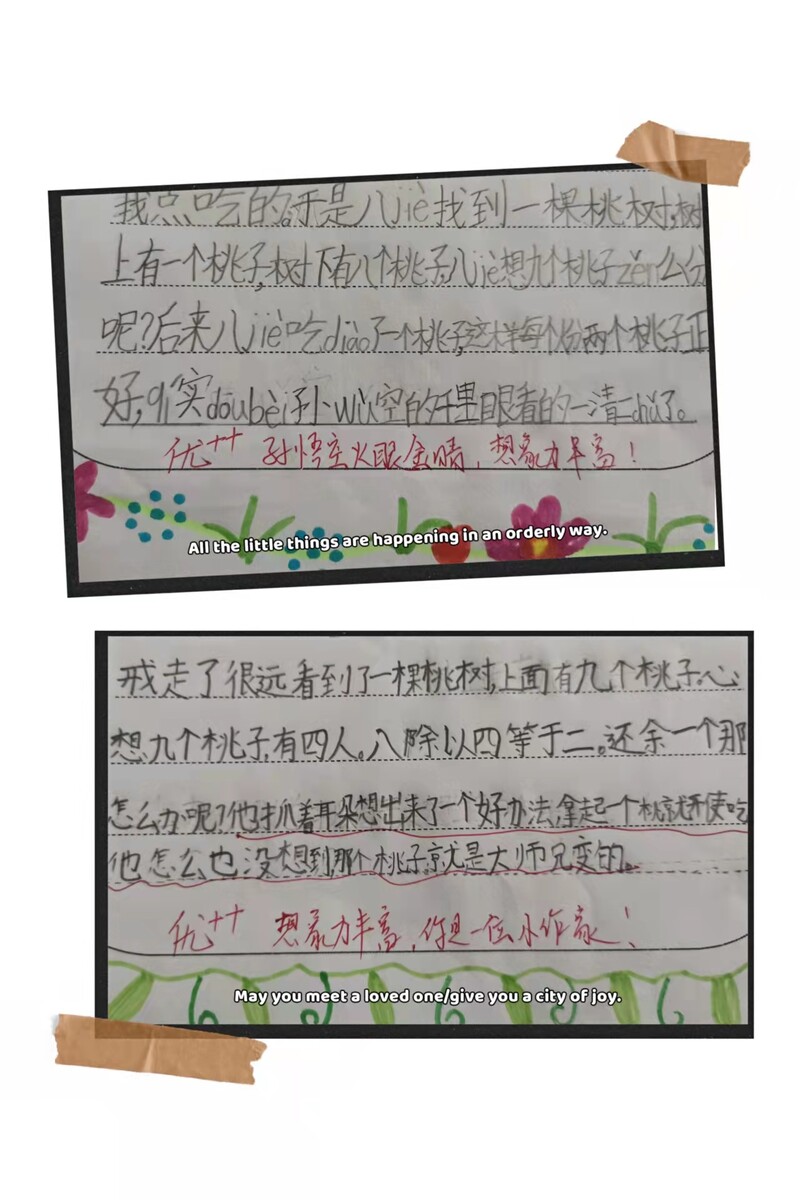 我点吃的。于是八jiè找到一棵桃树,树
上有一个桃子,树下有八个桃子,八jiè想九个桃子zěn么分
呢?后来八jiè吃diào了一个桃子,这样每个份两个桃子正
好,qí实dōubèi孙wù空的千里眼看的一清二chǔ了。
优++ 孙悟空火眼金睛,想象力丰富!
All the little things are happening in an orderly way.
戒走了很远看到了一棵桃树,上面有九个桃子。心
想九个桃子,有四人。八除以四等于二。还余一个那
怎么办呢?他抓着耳朵想出来了一个好办法,拿起一个桃就开使吃
他怎么也没想到那个桃子就是大师兄变的。
优++ 想象力丰富,你是一位小作家!
May you meet a loved one/give you a city of joy.